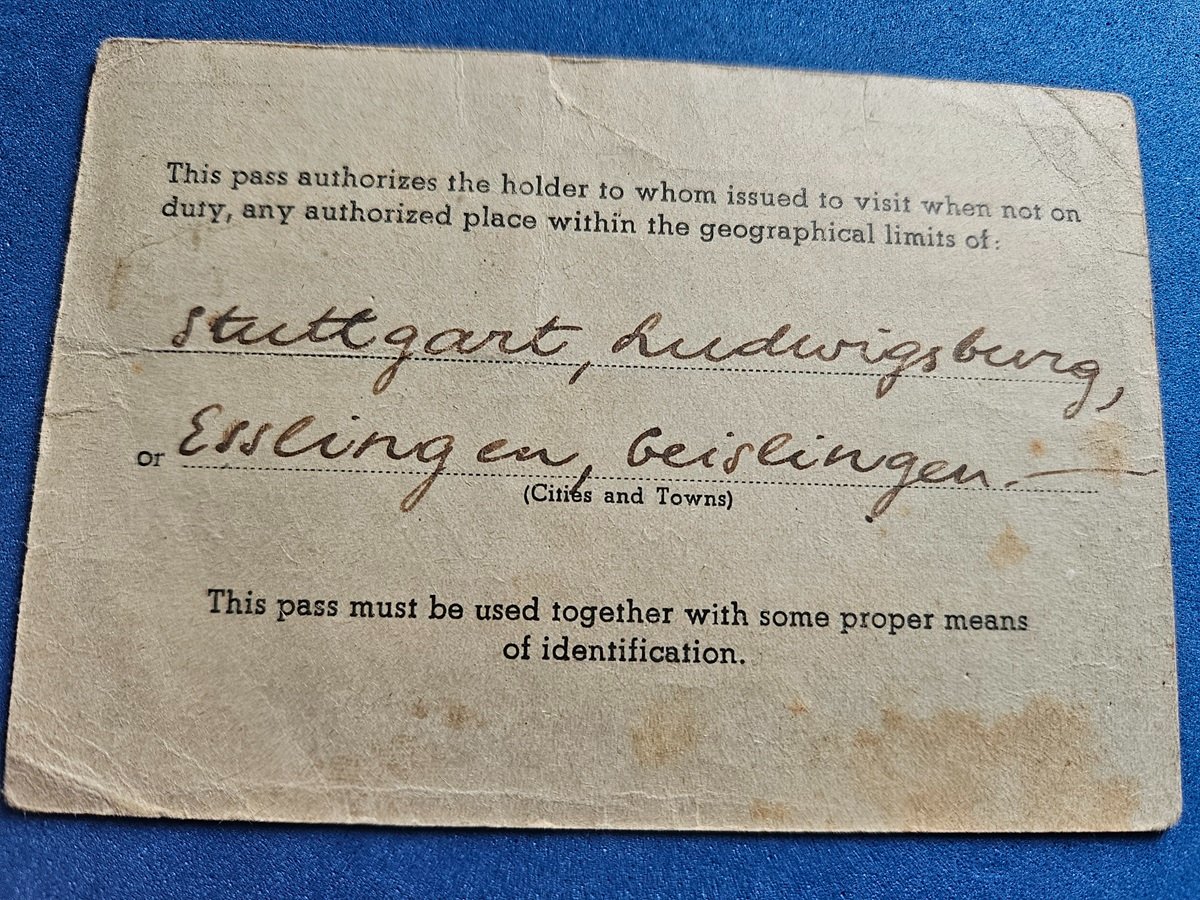 This pass authorizes the holder to whom issued to visit when not on
duty, any authorized place within the geographical limits of:
Stuttgart, Ludwigsburg,
or Esslingen, Geislingen.—
(Cities and Towns)
This pass must be used together with some proper means
of identification.